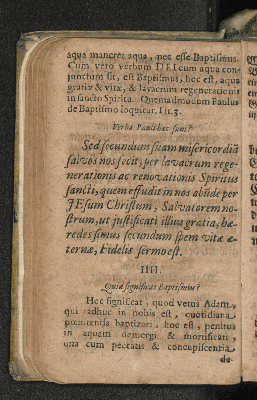 aqua maneret aqua, nec esse Baptismus.
Cum vero verbum DEI cum aqua con-
junctum sit, est Baptismus, hoc est, aqua
gratiæ & vitæ, & lavacrum regenerationis
in sancto Spiritu. Quemadmodum Paulus
de Baptismo loquitur. Tit. 3.
Verba Pauli hæc sunt?
Sed secundum suam misericordiā
salvos nos fecit, per lavacrum rege-
nerationis ac renovationis Spiritus
sancti, quem effudit in nos abūde per
JEsum Christum, Salvatorem no-
strum, ut justificati illius gratia, hæ-
redes simus secundum spem vitæ æ-
ternæ, Fidelis sermo est.
IIII.
Quid significat Baptismus?
Hoc significat, quod vetus Adam,
qui adhuc in nobis est, quotidiana
pœnitentia baptizari, hoc est, penitus
in aquam demergi & mortificari,
una cum peccatis & concupiscentia
de-